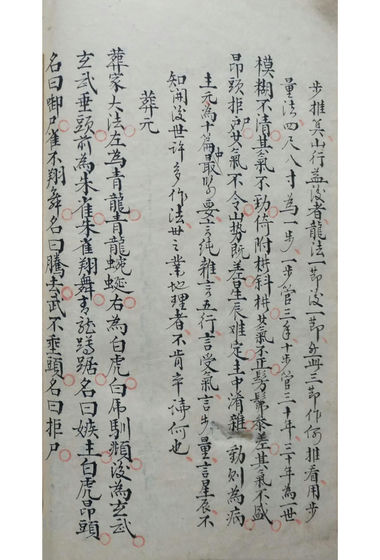 步推其山行益後者龍法一節後一節此三節作何推看用步
量法四尺八寸為一步一步管三年十步管三十年三十年為世
模糊不清其氣不劲倚附斜其氣不正髣髴參差其氣不盛
昂頭拒命其氣不令山勢既善星辰难定主中淆雜動則為病
主元為十篇中最緊要言純雜言五行言受氣言步量言星辰不
知開後世許多作法世之業地理者不肯辛諦何也
葬元
葬家大法左為青龍青龍蜿蜒右為白虎白虎馴頫後為玄武
玄武垂頭前為朱雀朱雀翔舞青龍蹲踞名曰嫉主白虎昂頭
名曰啣尸雀不翔舞名曰騰去武不垂頭名曰拒尸